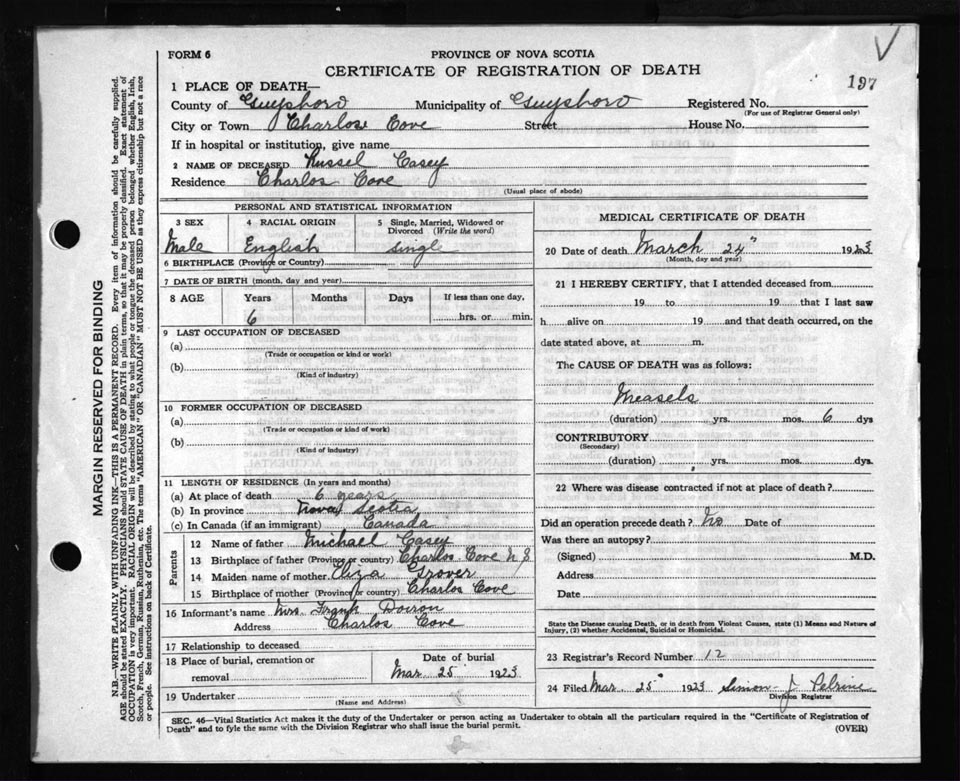 197
FORM 6
PROVINCE OF NOVA SCOTIA
CERTIFICATE OF REGISTRATION OF DEATH
1 PLACE OF DEATH—
County of Guysboro Municipality of Guysboro Registered No.
(For use of Registrar General only)
City or Town Charlose Cove Street House No.
If in hospital or institution, give name
2 NAME OF DECEASED Russel Casey
Residence Charlos Cove
(Usual place of abode)
PERSONAL AND STATISTICAL INFORMATION
3 SEX 4 RACIAL ORIGIN 5 Single, Married, Widowed or Divorced (Write the word)
Male English single
6 BIRTHPLACE (Province or Country)
7 DATE OF BIRTH (month, day and year)
8 AGE Years Months Days If less than one day,
6 hrs. or min.
9 LAST OCCUPATION OF DECEASED
(a)
(Trade or occupation or kind of work)
(b)
(Kind of industry)
10 FORMER OCCUPATION OF DECEASED
(a)
(Trade or occupation or kind of work)
(b)
(Kind of industry)
11 LENGTH OF RESIDENCE (In years and months)
(a) At place of death 6 years
(b) In province Nova Scotia
(c) In Canada (if an immigrant) Canada
Parents
12 Name of father Michael Casey
13 Birthplace of father (Province or country) Charlos Cove N S
14 Maiden name of mother Eliza Grover
15 Birthplace of mother (Province or country) Charlos Cove
16 Informant's name Mrs. Frank Doiron
Address Charlos Cove
17 Relationship to deceased
18 Place of burial, cremation or removal Date of burial
Mar 25 1923
19 Undertaker
(Name and Address)
MEDICAL CERTIFICATE OF DEATH
20 Date of death March 24" 1923
(Month, day and year)
21 I HEREBY CERTIFY, that I attended deceased from
19 to 19 that I last saw
h alive on 19 and that death occurred, on the
date stated above, at m.
The CAUSE OF DEATH was as follows:
Measels
(duration) yrs. mos. 6 dys
CONTRIBUTORY
(Secondary)
(duration) yrs. mos. dys.
22 Where was disease contracted if not at place of death?
Did an operation precede death? No Date of
Was there an autopsy?
(Signed) M.D.
Address
Date
State the Disease causing Death, or in death from Violent Causes, state (1) Means and Nature of
Injury, (2) whether Accidental, Suicidal or Homicidal.
23 Registrar's Record Number 12
24 Filed Mar. 25" 1923 Simon J Pelrine
Division Registrar
SEC. 46—Vital Statistics Act makes it the duty of the Undertaker or person acting as Undertaker to obtain all the particulars required in the "Certificate of Registration of
Death" and to fyle the same with the Division Registrar who shall issue the burial permit.
(OVER)
MARGIN RESERVED FOR BINDING
N.B.—WRITE PLAINLY WITH UNFADING INK—THIS IS A PERMANENT RECORD. Every item of information should be carefully supplied.
AGE should be stated EXACTLY. PHYSICIANS should STATE CAUSE OF DEATH in plain terms, so that it may be properly classified. Exact statement of
OCCUPATION is very important. RACIAL ORIGIN will be described by stating to what people or tongue the deceased person belonged whether English, Irish,
Scotch, French, German, Russian, Ruthenian, etc. The terms "AMERICAN" OR "CANADIAN" MUST NOT BE USED as they express citizenship but not a race
or people. See instructions on back of Certificate.